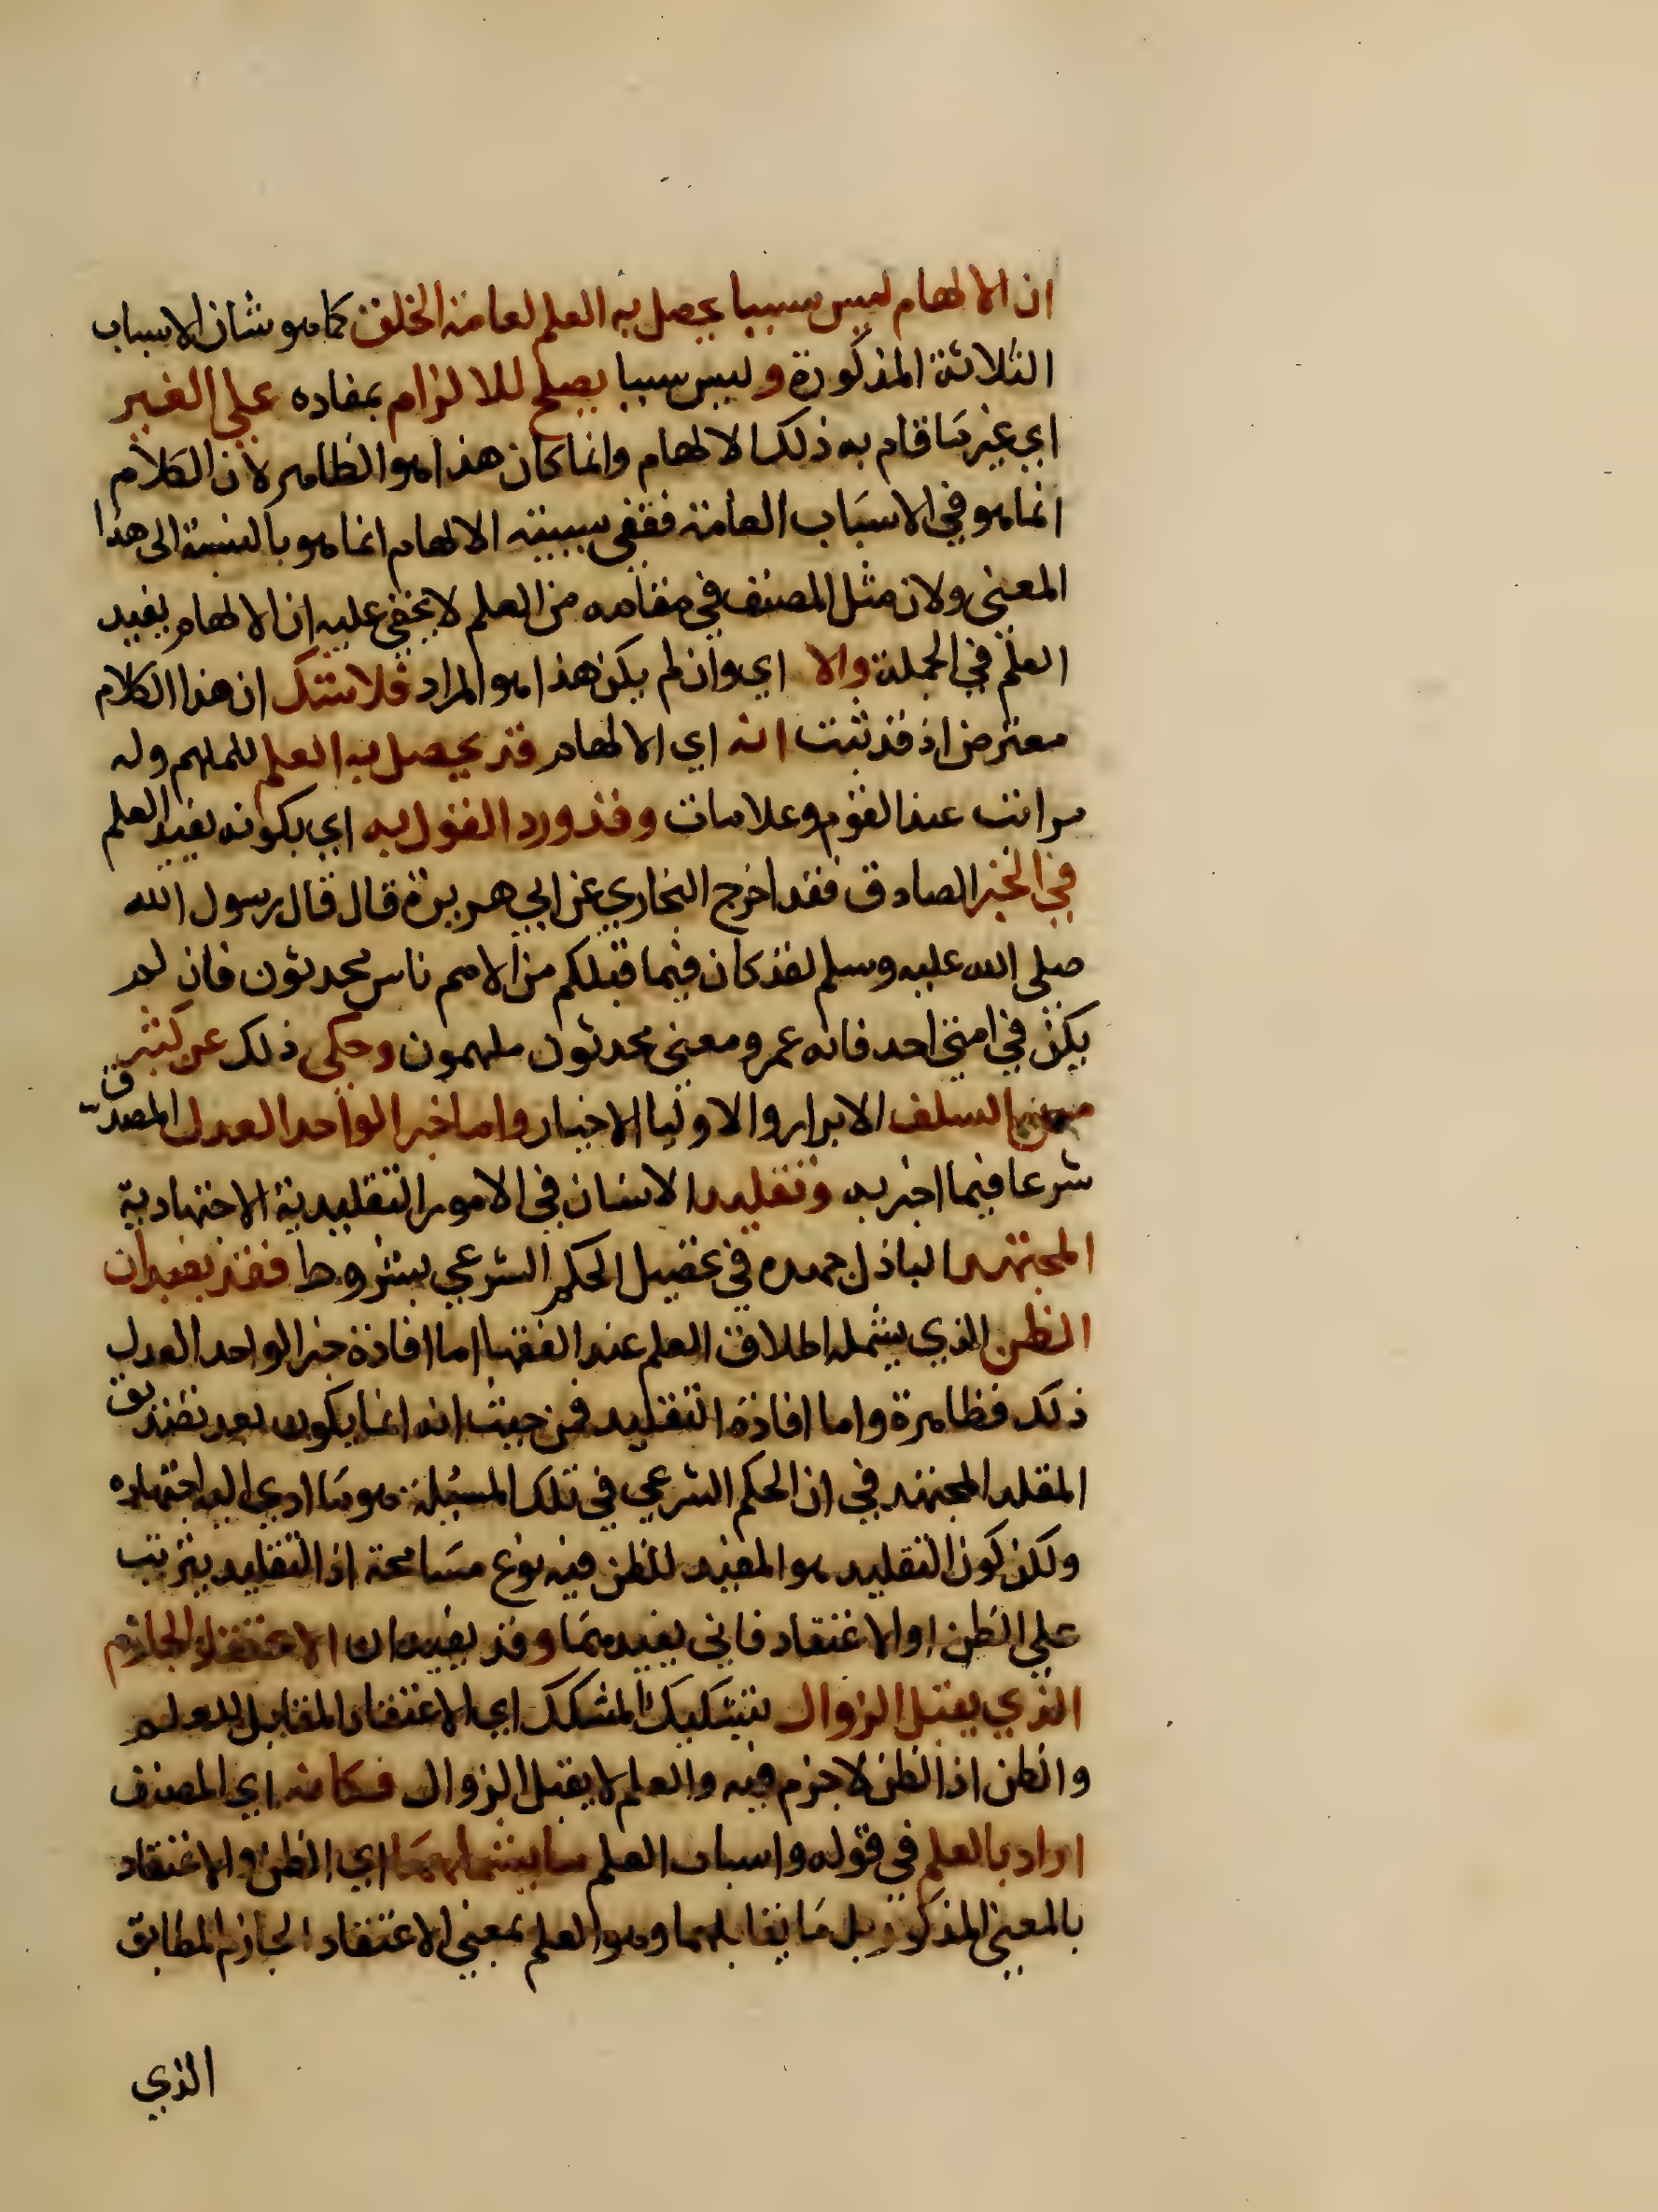 ان الالهام ليس سببا يحصل به العلم لعامة الخلق كما هو شان الاسباب
الثلاثة المذكورة وليس سببا يصلح للالزام بمفاده علي الغير
اي غير ما قام به ذلك الالهام وانما كان هذا هو الظاهر لان الكلام
انما هو في الاسباب العامة فنفي سببية الالهام انما هو بالنسبة الى هذا
المعنى ولان مثل المصنف في مقامه من العلم لا يخفى عليه ان الالهام يفيد
العلم في الجملة والا اي وان لم يكن هذا هو المراد فلا شك ان هذا الكلام
معترض اذ قد ثبت انه اي الالهام قد يحصل به العلم للملهم وله
مراتب عند القوم وعلامات وقد ورد القول به اي بكونه يفيد العلم
في الخبر الصادق فقد اخرج البخاري عن ابي هريرة قال قال رسول الله
صلى الله عليه وسلم لقد كان فيما قبلكم من الامم ناس محدثون فان لم
يكن في امتي احد فانه عمر ومعنى محدثون ملهمون وحكي ذلك عن كثير
من السلف الابرار والاوليا الاخيار واما خبر الواحد العدل المصدق
شرعا فيما اخبر به وتقليد الانسان في الامور التقليدية الاجتهادية
المجتهد الباذل جهده في تحصيل الحكم الشرعي بشروط فقد يفيدان
الظن الذي يشمله اطلاق العلم عند الفقها اما افادة خبر الواحد العدل
ذلك فظاهرة واما افادة التقليد فمن حيث انه انما يكون بعد تصديق
المقلد المجتهد في ان الحكم الشرعي في تلك المسئلة هو ما ادي اليه اجتهاده
ولكن كون التقليد هو المفيد للظن فيه نوع مسامحة اذ التقليد يترتب
علي الظن او الاعتقاد فاني يفيدهما وقد يفيدان الاعتقاد الجازم
الذي يقبل الزوال بتشكيك المشكك اي الاعتقاد المقابل للعلم
والظن اذ الظن لا جزم فيه والعلم لا يقبل الزوال فكانه اي المصنف
اراد بالعلم في قوله واسباب العلم ما يشملهما اي الظن والاعتقاد
بالمعنى المذكور بل ما يقابلهما وهو العلم بمعنى الاعتقاد الجازم المطابق
الذي